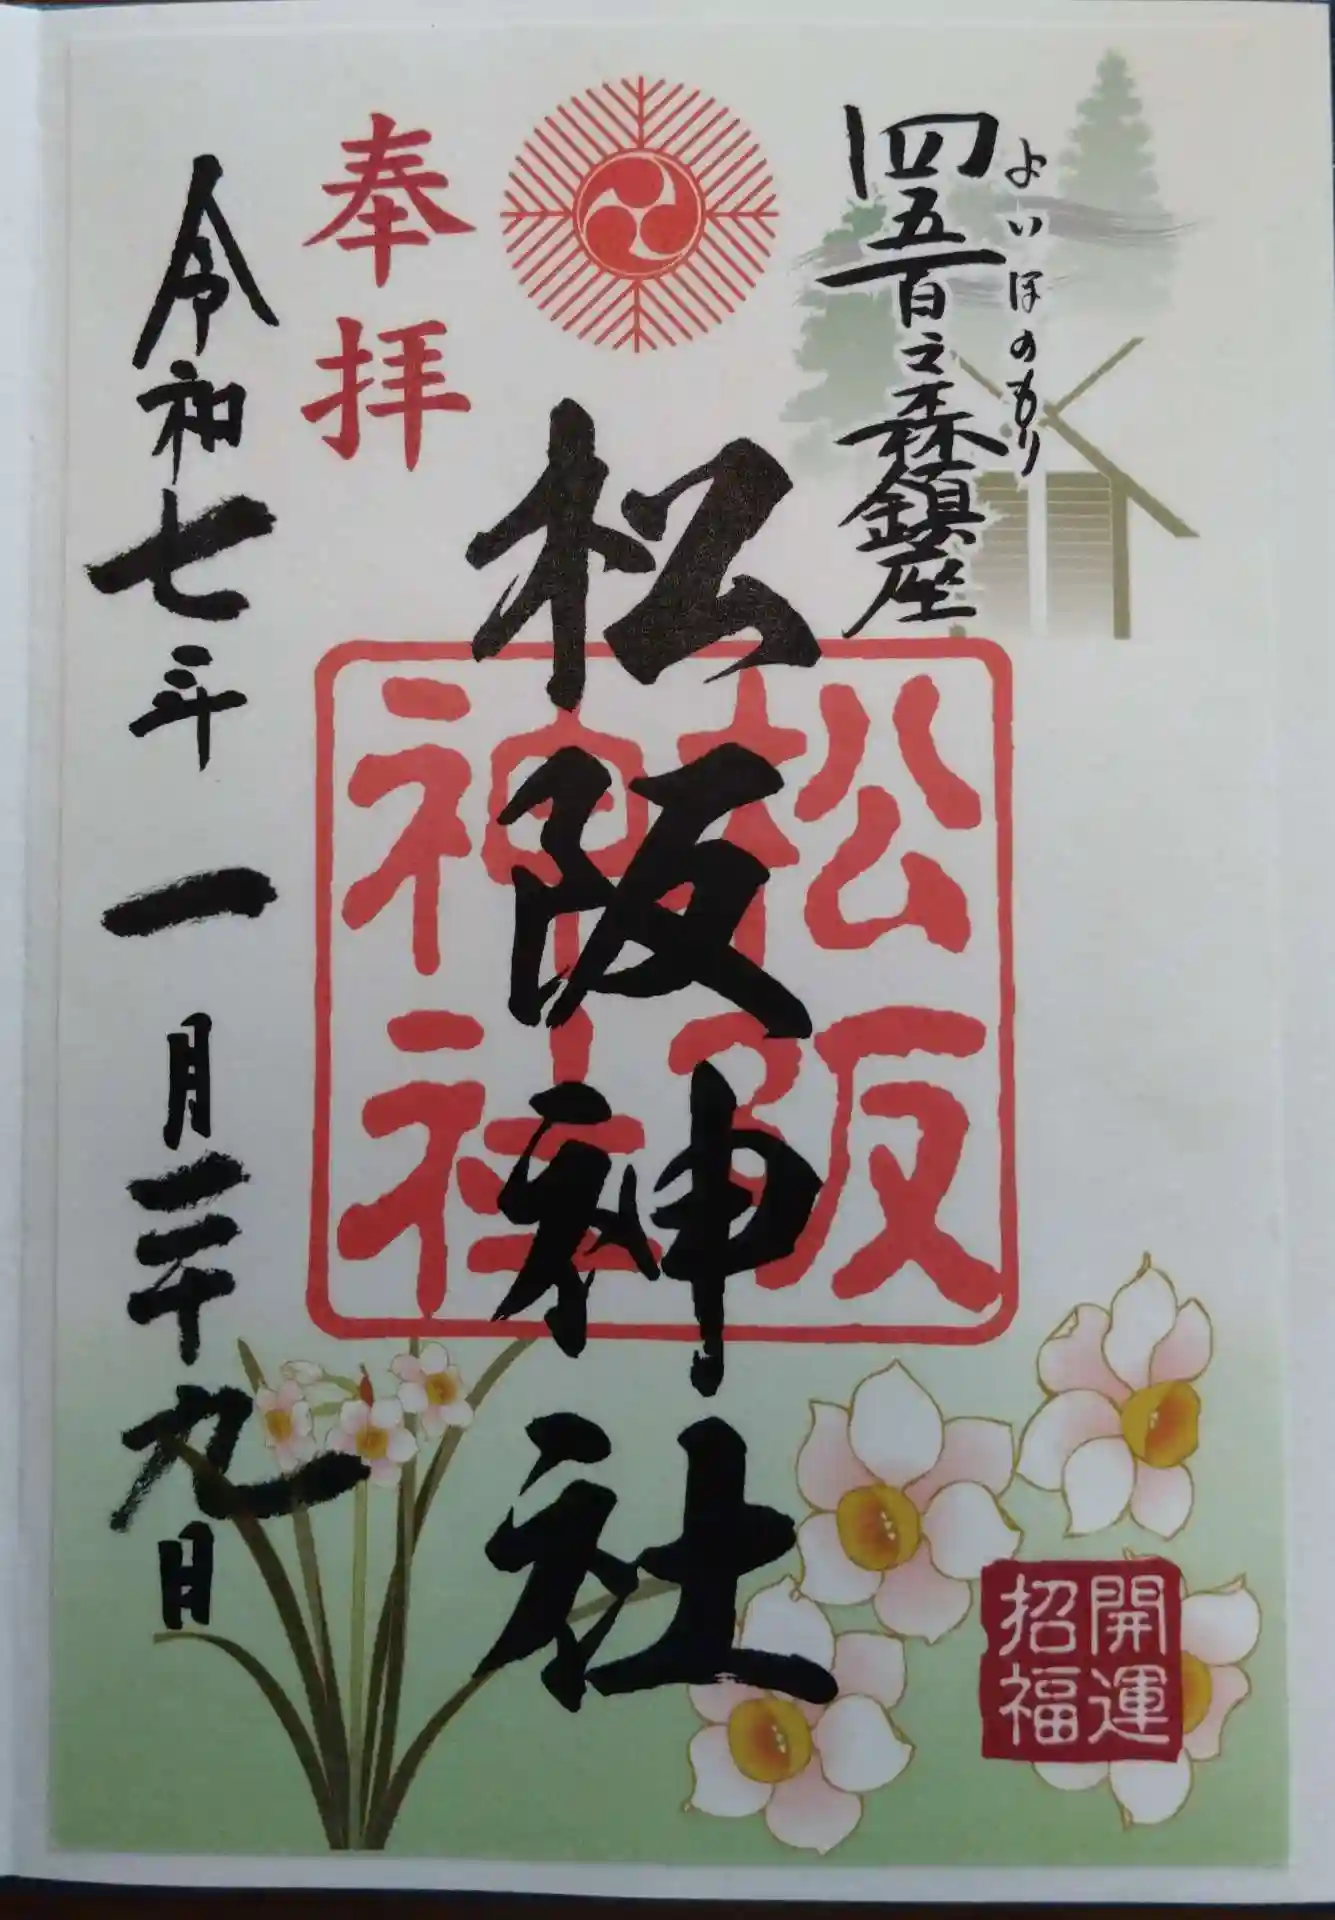 四五百之森鎮座
よいほのもり
松阪神社
松阪
神社
奉拝
令和七年一月二十九日
開運
招福